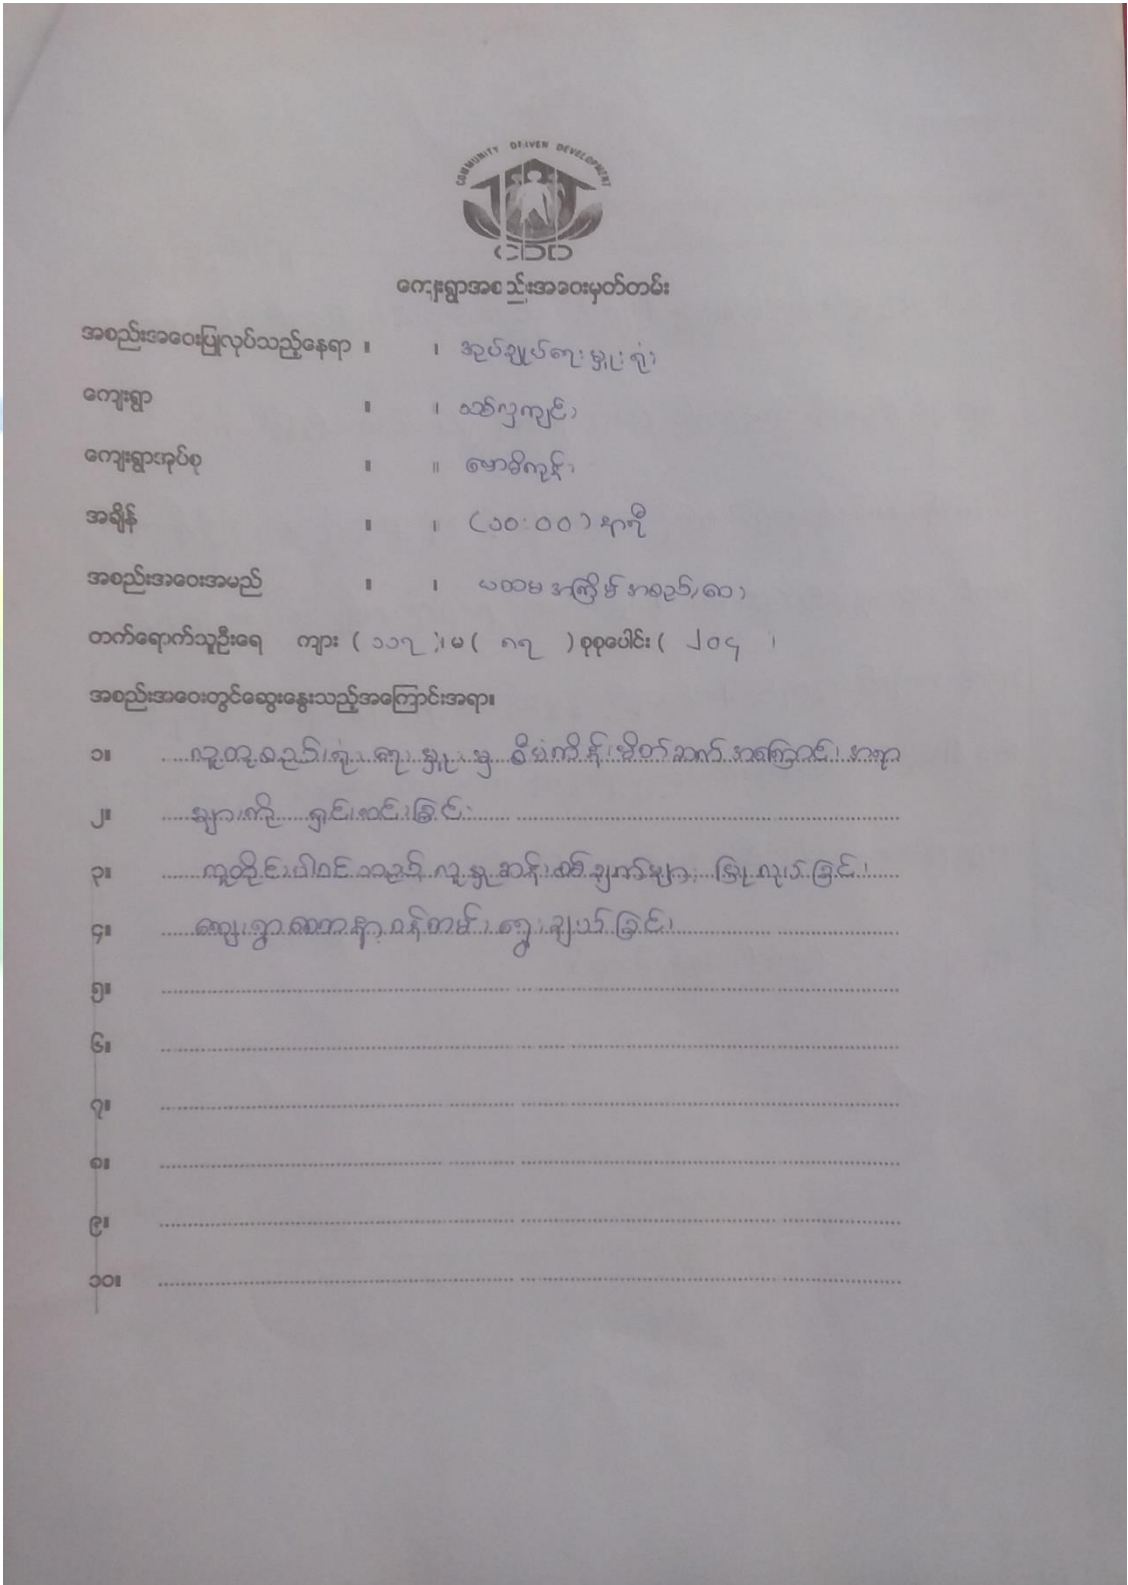 COMMUNITY DRIVEN DEVELOPMENT
CDD
ကျေးရွာအစည်းအဝေးမှတ်တမ်း
အစည်းအဝေးပြုလုပ်သည့်နေရာ ။ ။ အုပ်ချုပ်ရေးမှူးရုံး
ကျေးရွာ ။ ။
ကျေးရွာအုပ်စု ။ ။
အချိန် ။ ။ (၁၀:၀၀) နာရီ
အစည်းအဝေးအမည် ။ ။ ပထမအကြိမ်အစည်းအဝေး
တက်ရောက်သူဦးရေ ကျား ( ၁၁၇ )၊ မ ( ၈၇ ) စုစုပေါင်း ( ၂၀၄ )
အစည်းအဝေးတွင်ဆွေးနွေးသည့်အကြောင်းအရာ။
၁။ လူထုစည်းရုံးရေးမှူးမှ စီမံကိန်းမိတ်ဆက်အကြောင်းအရာ
၂။ များကို ရှင်းလင်းခြင်း
၃။ ကိုယ်တိုင်ပါဝင်သည့်လူမှုဆန်းစစ်ချက်များ ပြုလုပ်ခြင်း
၄။ ကျေးရွာစေတနာ့ဝန်ထမ်းရွေးချယ်ခြင်း
၅။
၆။
၇။
၈။
၉။
၁၀။